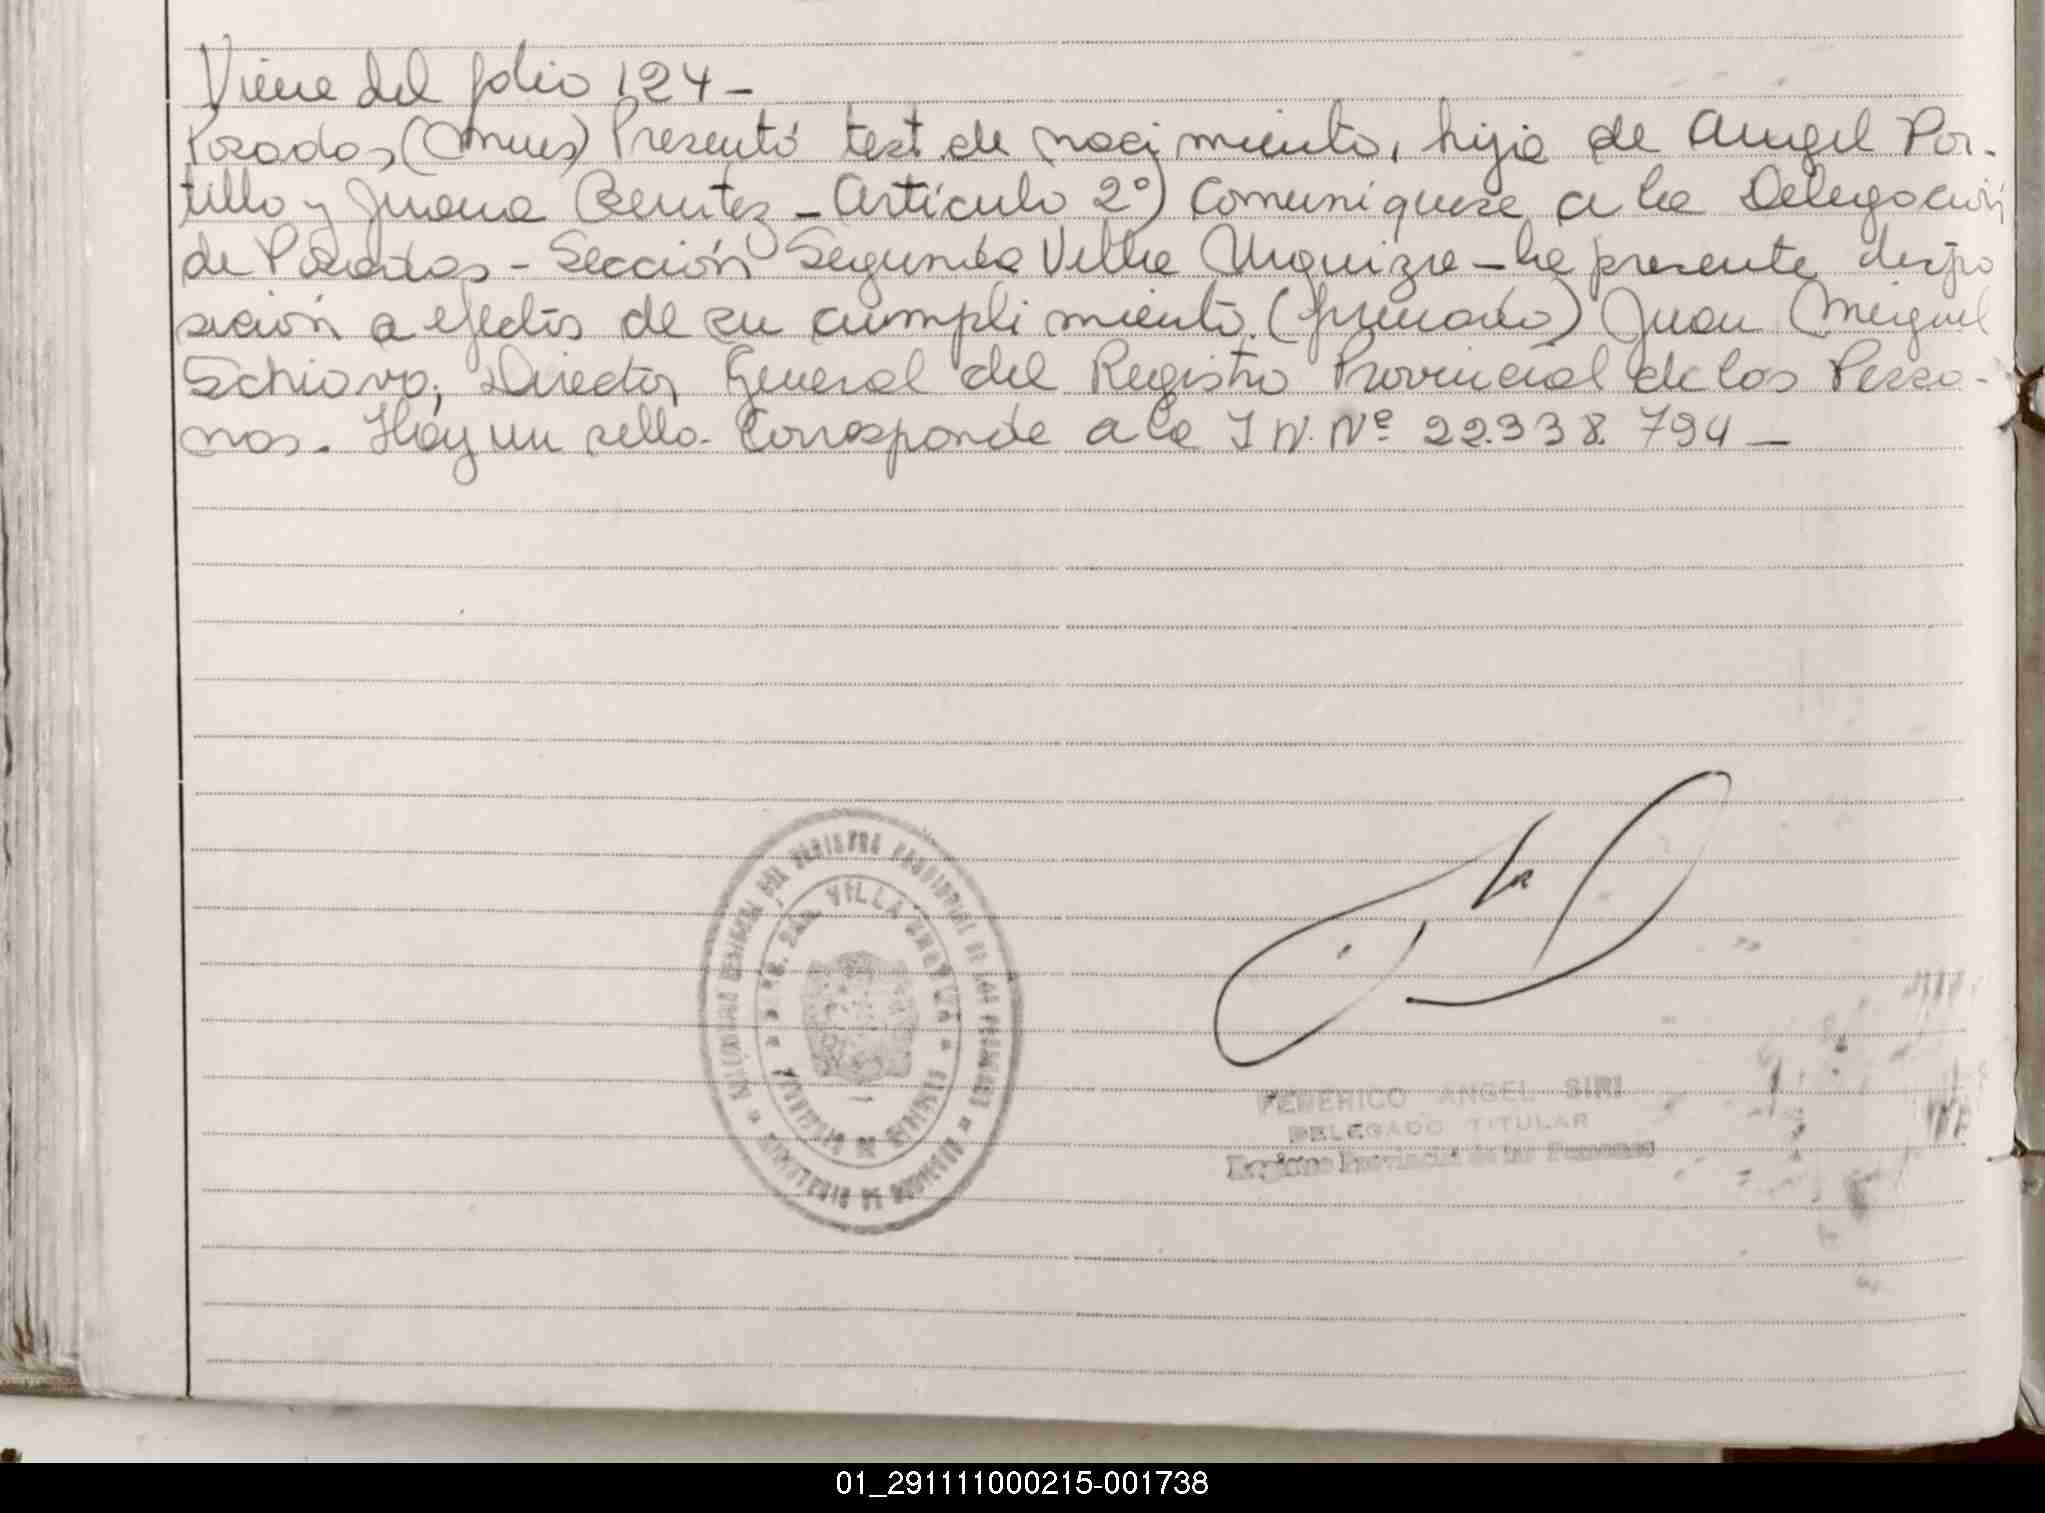 Viene del folio 124-
Posadas, (Mnes) Presentó test. de nacimiento, hija de Angel Por-
tillo y Juana Benitez - Artículo 2º) Comuniquese a la Delegación
de Posadas - Sección Segunda Villa Urquiza - la presente dispo
sición a efectos de su cumplimiento. (firmado) Juan Miguel
Schiavo, Director General del Registro Provincial de las Perso-
nas. Hay un sello. Corresponde a la I N. Nº 22.338.794 -
VILLA URQUIZA
FEDERICO ANGEL SIRI
DELEGADO TITULAR
Registro Provincial de las Personas
01_291111000215-001738